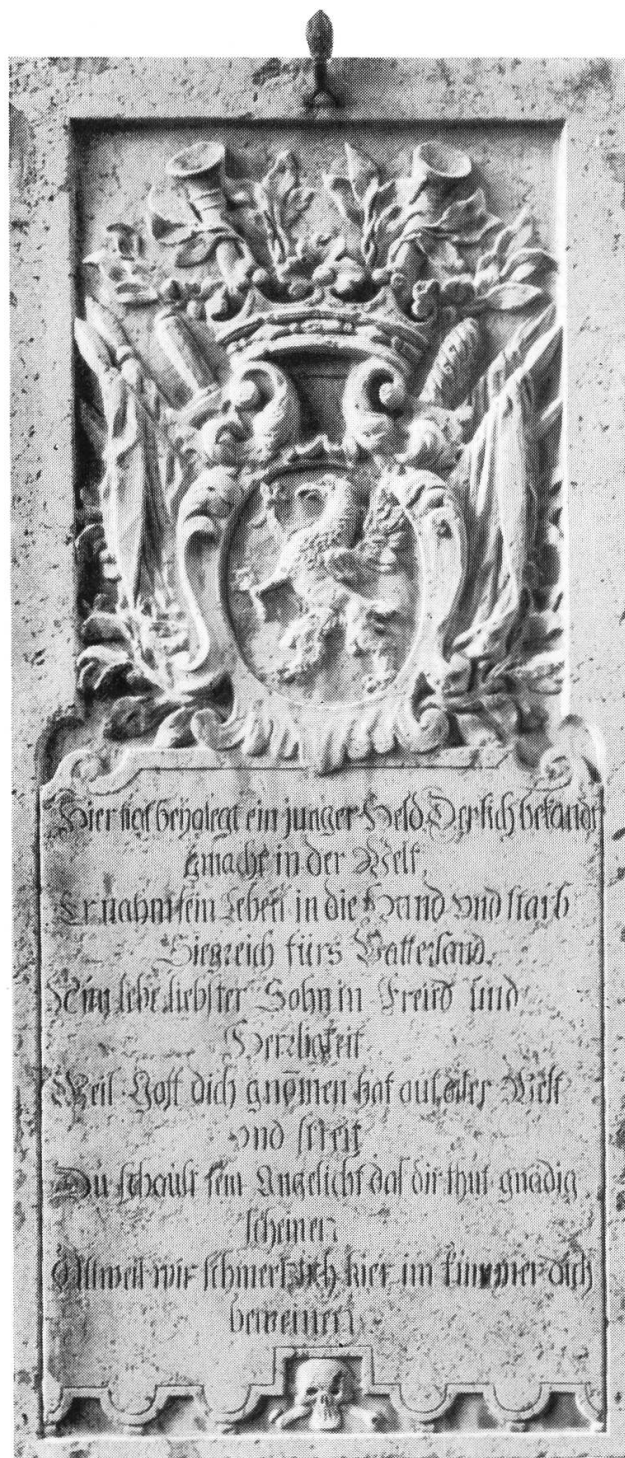 Hier ligt beygelegt ein junger Held, Der sich bekandt
gmacht in der Welt,
Er nahm sein Leben in die Hand vnd starb
Siegreich fürs Vatterland.
Nun lebe liebster Sohn in Freüd und
Herrligkeit
Weil Gott dich gnom̄en hat aus aller Welt
vnd streit
Du schaust sein Angesicht das dir thut gnädig
scheinen
Allweil wir schmertzlich hier im kummer dich
beweinen